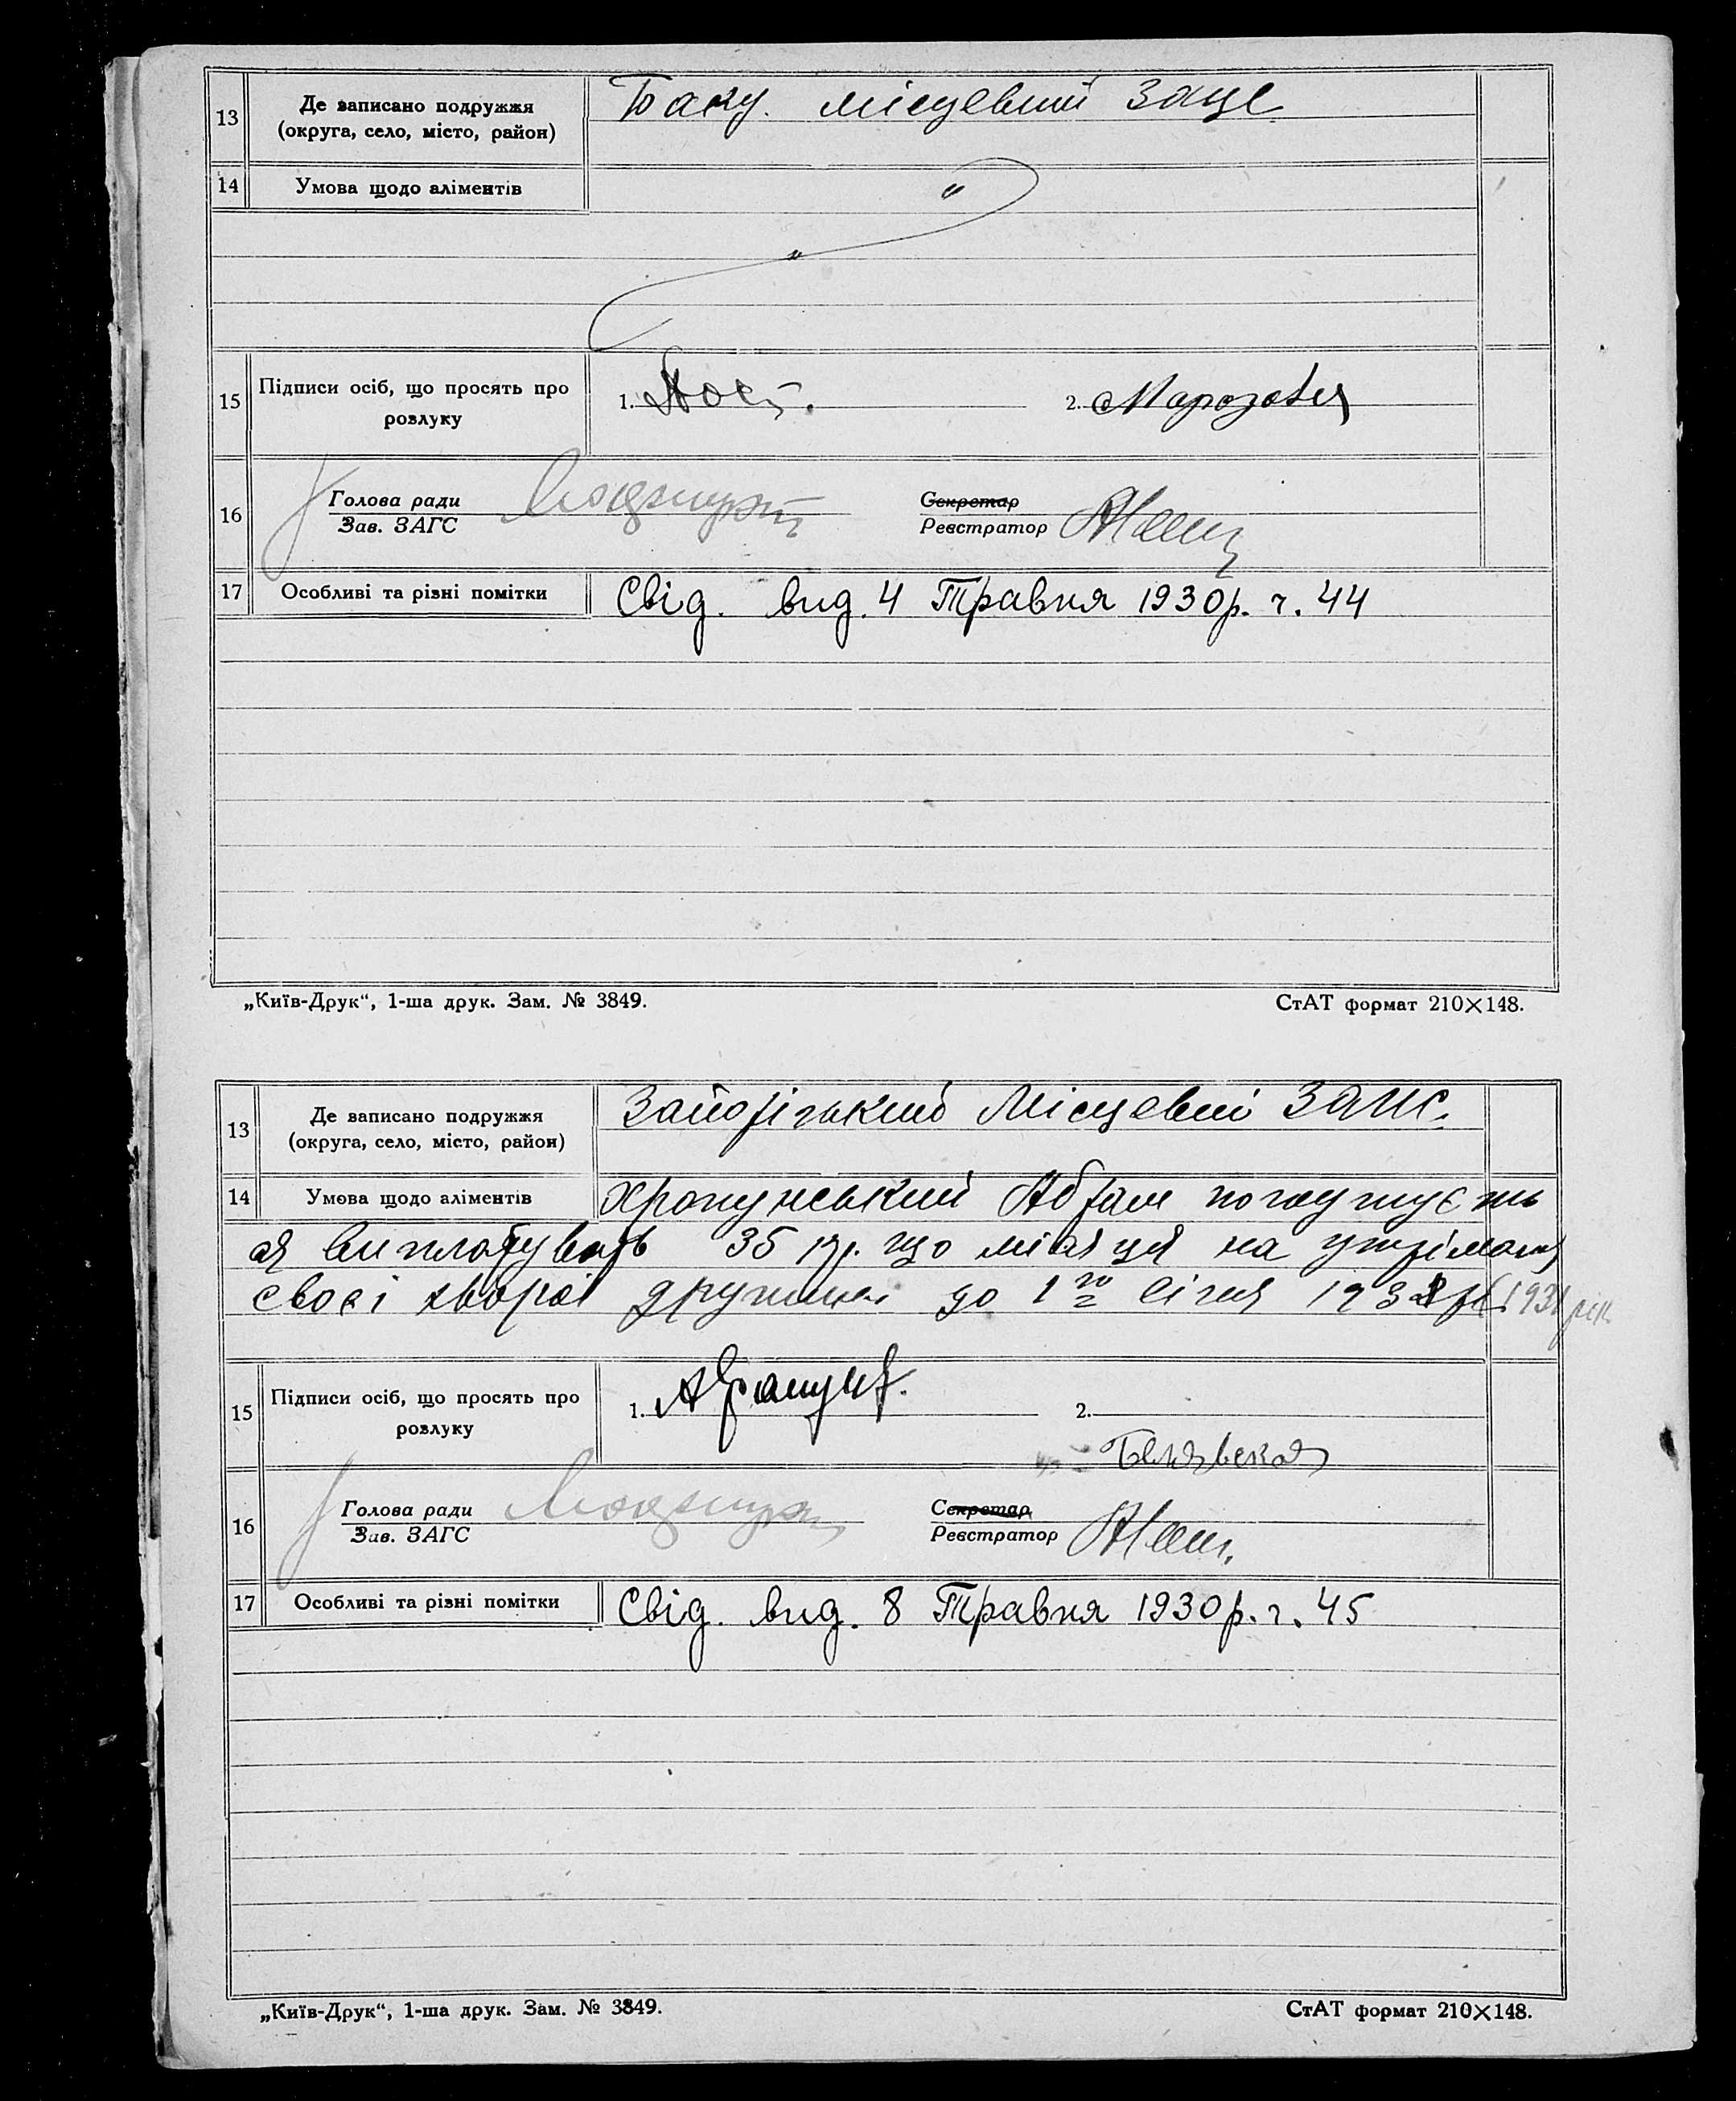 13
Де записано подружжя
(округа, село, місто, район)
Баку. місцевий Загс
14
Умова щодо аліментів
15
Підписи осіб, що просять про
розлуку
1.
2. Марозовея
16
Голова ради
Зав. ЗАГС
Секретар
Реєстратор
17
Особливі та різні помітки
Свід. вид. 4 Травня 1930 р. ч. 44
„Київ-Друк“, 1-ша друк. Зам. № 3849.
СтАТ формат 210×148.
13
Де записано подружжя
(округа, село, місто, район)
Запорізький Місцевий ЗАГС.
14
Умова щодо аліментів
Хропунський Абрам погоджуєть
ся виплачувать 35 кр. що місяця на утрімання
своєї хворої дружини до 1го Січня 1931 р. (1931 рік
15
Підписи осіб, що просять про
розлуку
1.
2.
Белявская
16
Голова ради
Зав. ЗАГС
Секретар
Реєстратор
17
Особливі та різні помітки
Свід. вид. 8 Травня 1930 р. ч. 45
„Київ-Друк“, 1-ша друк. Зам. № 3849.
СтАТ формат 210×148.